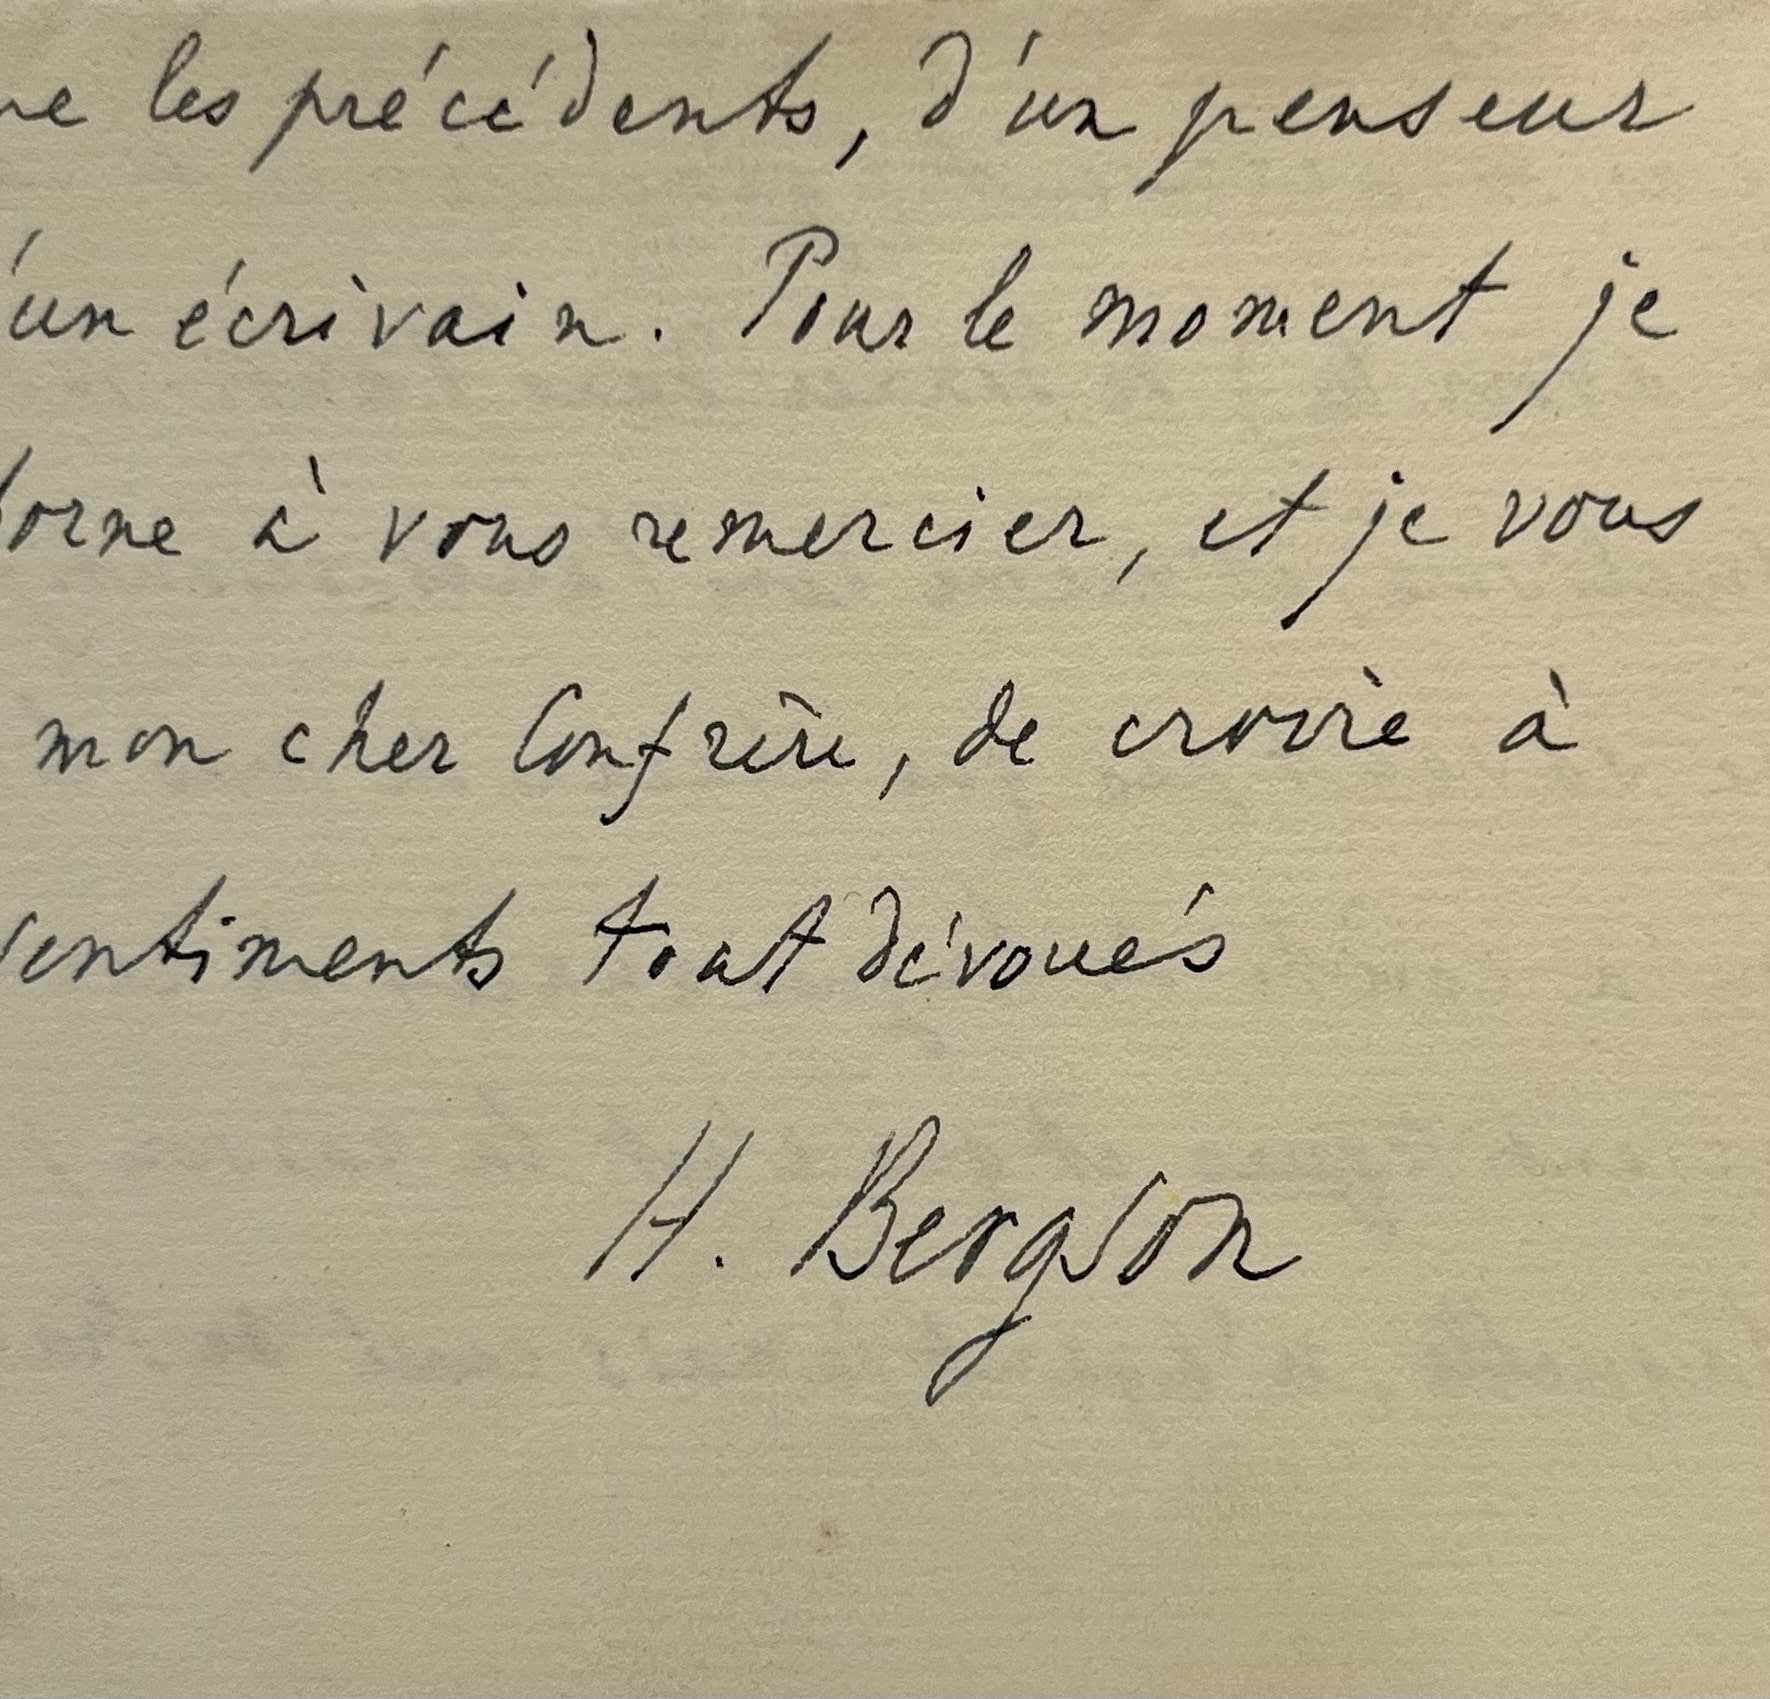 les précédents, d'un penseur
'un écrivain. Pour le moment je
borne à vous remercier, et je vous
mon cher Confrère, de croire à
sentiments tout dévoués
H. Bergson